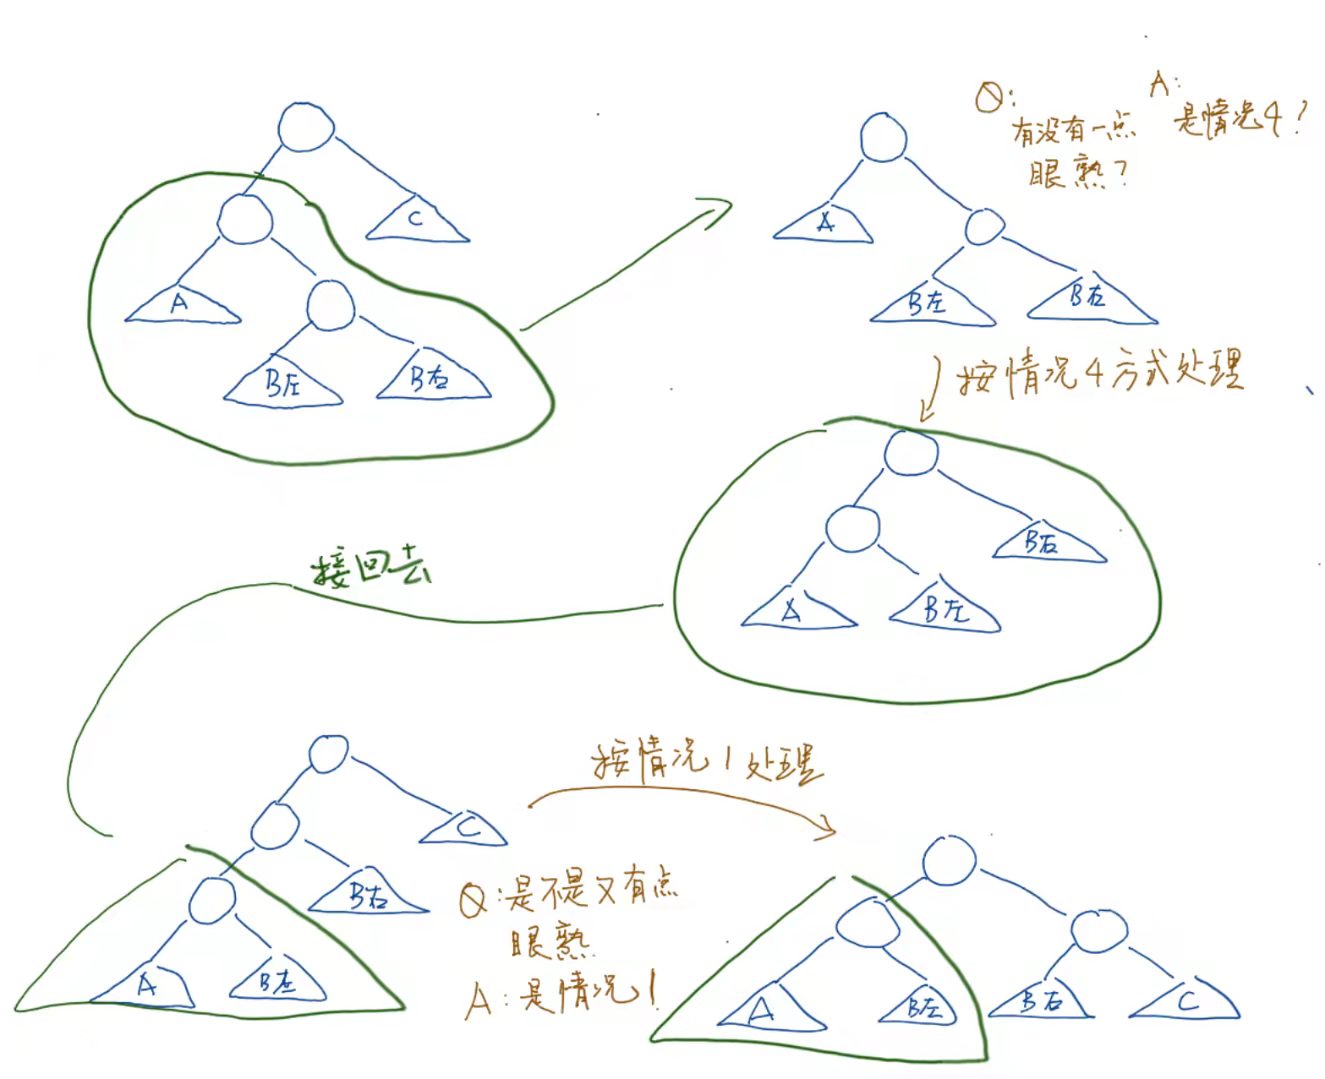 C
A
B左
B右
Q:
有没有一点
眼熟?
A:
是情况4?
A
B左
B右
按情况4方式处理
B右
A
B左
接回去
C
B右
A
B左
按情况1处理
Q:是不是又有点
眼熟
A:是情况1
A
B左
B右
C